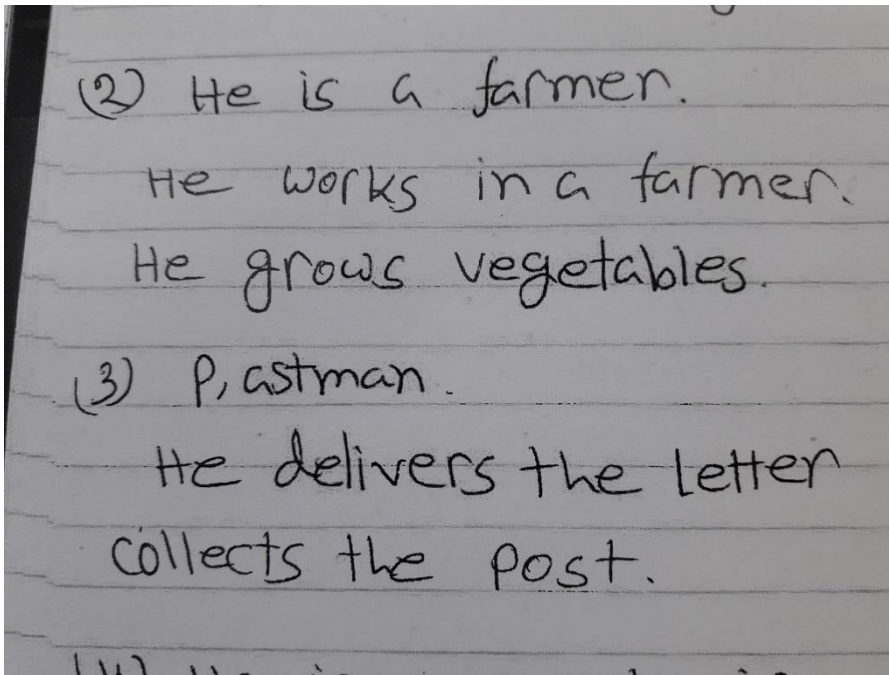 (2) He is a farmer.
He works in a farmer.
He grows vegetables.
(3) P, astman.
He delivers the letter
collects the post.